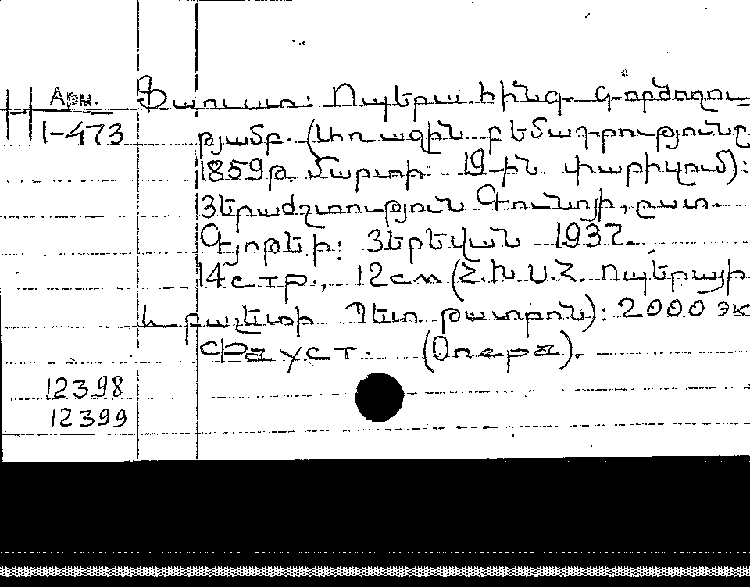 Арм.
1-473
Ֆաուստ: Ոպերա հինգ գործողու
թյամբ. (Առագին բեմադրությունը
1859թ. մարտի 19-ին փարիզում):
Յերաժշտություն Գունոյի, ըստ
Գյոթեի: Յերեվան 1937.
14 стр., 12 см (Հ.Խ.Ս.Հ. Ոպերայի
և բալետի Պետ. թատրոն): 2000 эк
Фауст. (Опера).
12398
12399